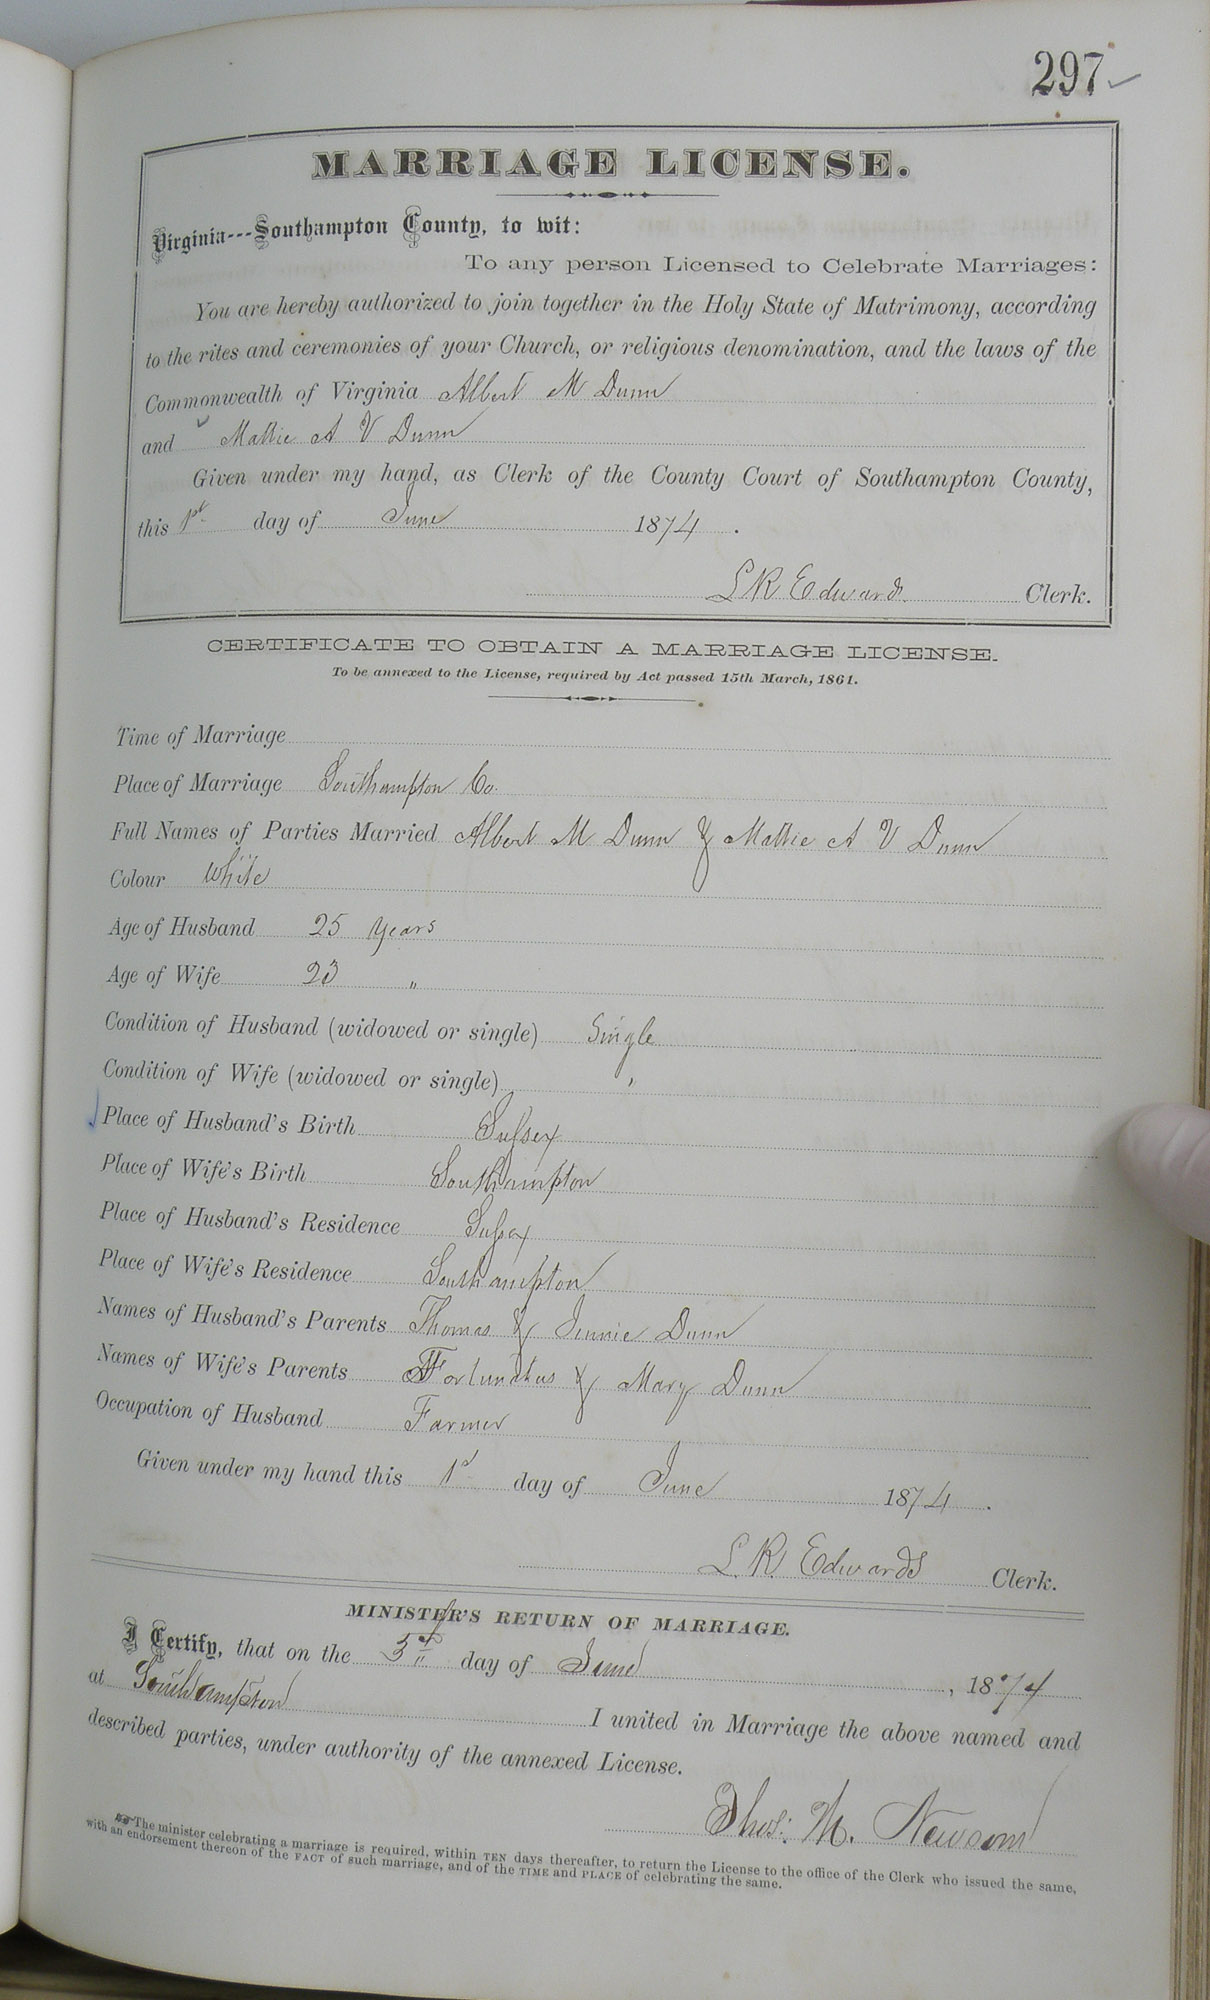 297
MARRIAGE LICENSE.
Virginia---Southampton County, to wit:
To any person Licensed to Celebrate Marriages:
You are hereby authorized to join together in the Holy State of Matrimony, according
to the rites and ceremonies of your Church, or religious denomination, and the laws of the
Commonwealth of Virginia Albert M Dunn
and Mattie A V Dunn
Given under my hand, as Clerk of the County Court of Southampton County,
this 1st day of June 1874.
L R Edwards Clerk.
CERTIFICATE TO OBTAIN A MARRIAGE LICENSE.
To be annexed to the License, required by Act passed 15th March, 1861.
Time of Marriage
Place of Marriage Southampton Co.
Full Names of Parties Married Albert M Dunn & Mattie A V Dunn
Colour White
Age of Husband 25 Years
Age of Wife 23 "
Condition of Husband (widowed or single) Single
Condition of Wife (widowed or single) "
Place of Husband's Birth Sussex
Place of Wife's Birth Southampton
Place of Husband's Residence Sussex
Place of Wife's Residence Southampton
Names of Husband's Parents Thomas & Jennie Dunn
Names of Wife's Parents Fortunatus & Mary Dunn
Occupation of Husband Farmer
Given under my hand this 1st day of June 1874.
L. R. Edwards Clerk.
MINISTER'S RETURN OF MARRIAGE.
I Certify, that on the day of June, 1874
at Southampton I united in Marriage the above named and
described parties, under authority of the annexed License.
Thos: M. Newsom
The minister celebrating a marriage is required, within TEN days thereafter, to return the License to the office of the Clerk who issued the same,
with an endorsement thereon of the FACT of such marriage, and of the TIME and PLACE of celebrating the same.